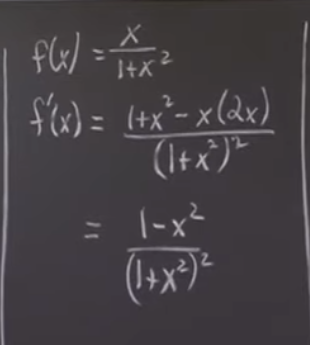 f(x) = x/(1+x²)
f'(x) = (1+x² - x(2x))/(1+x²)²
= (1-x²)/(1+x²)²